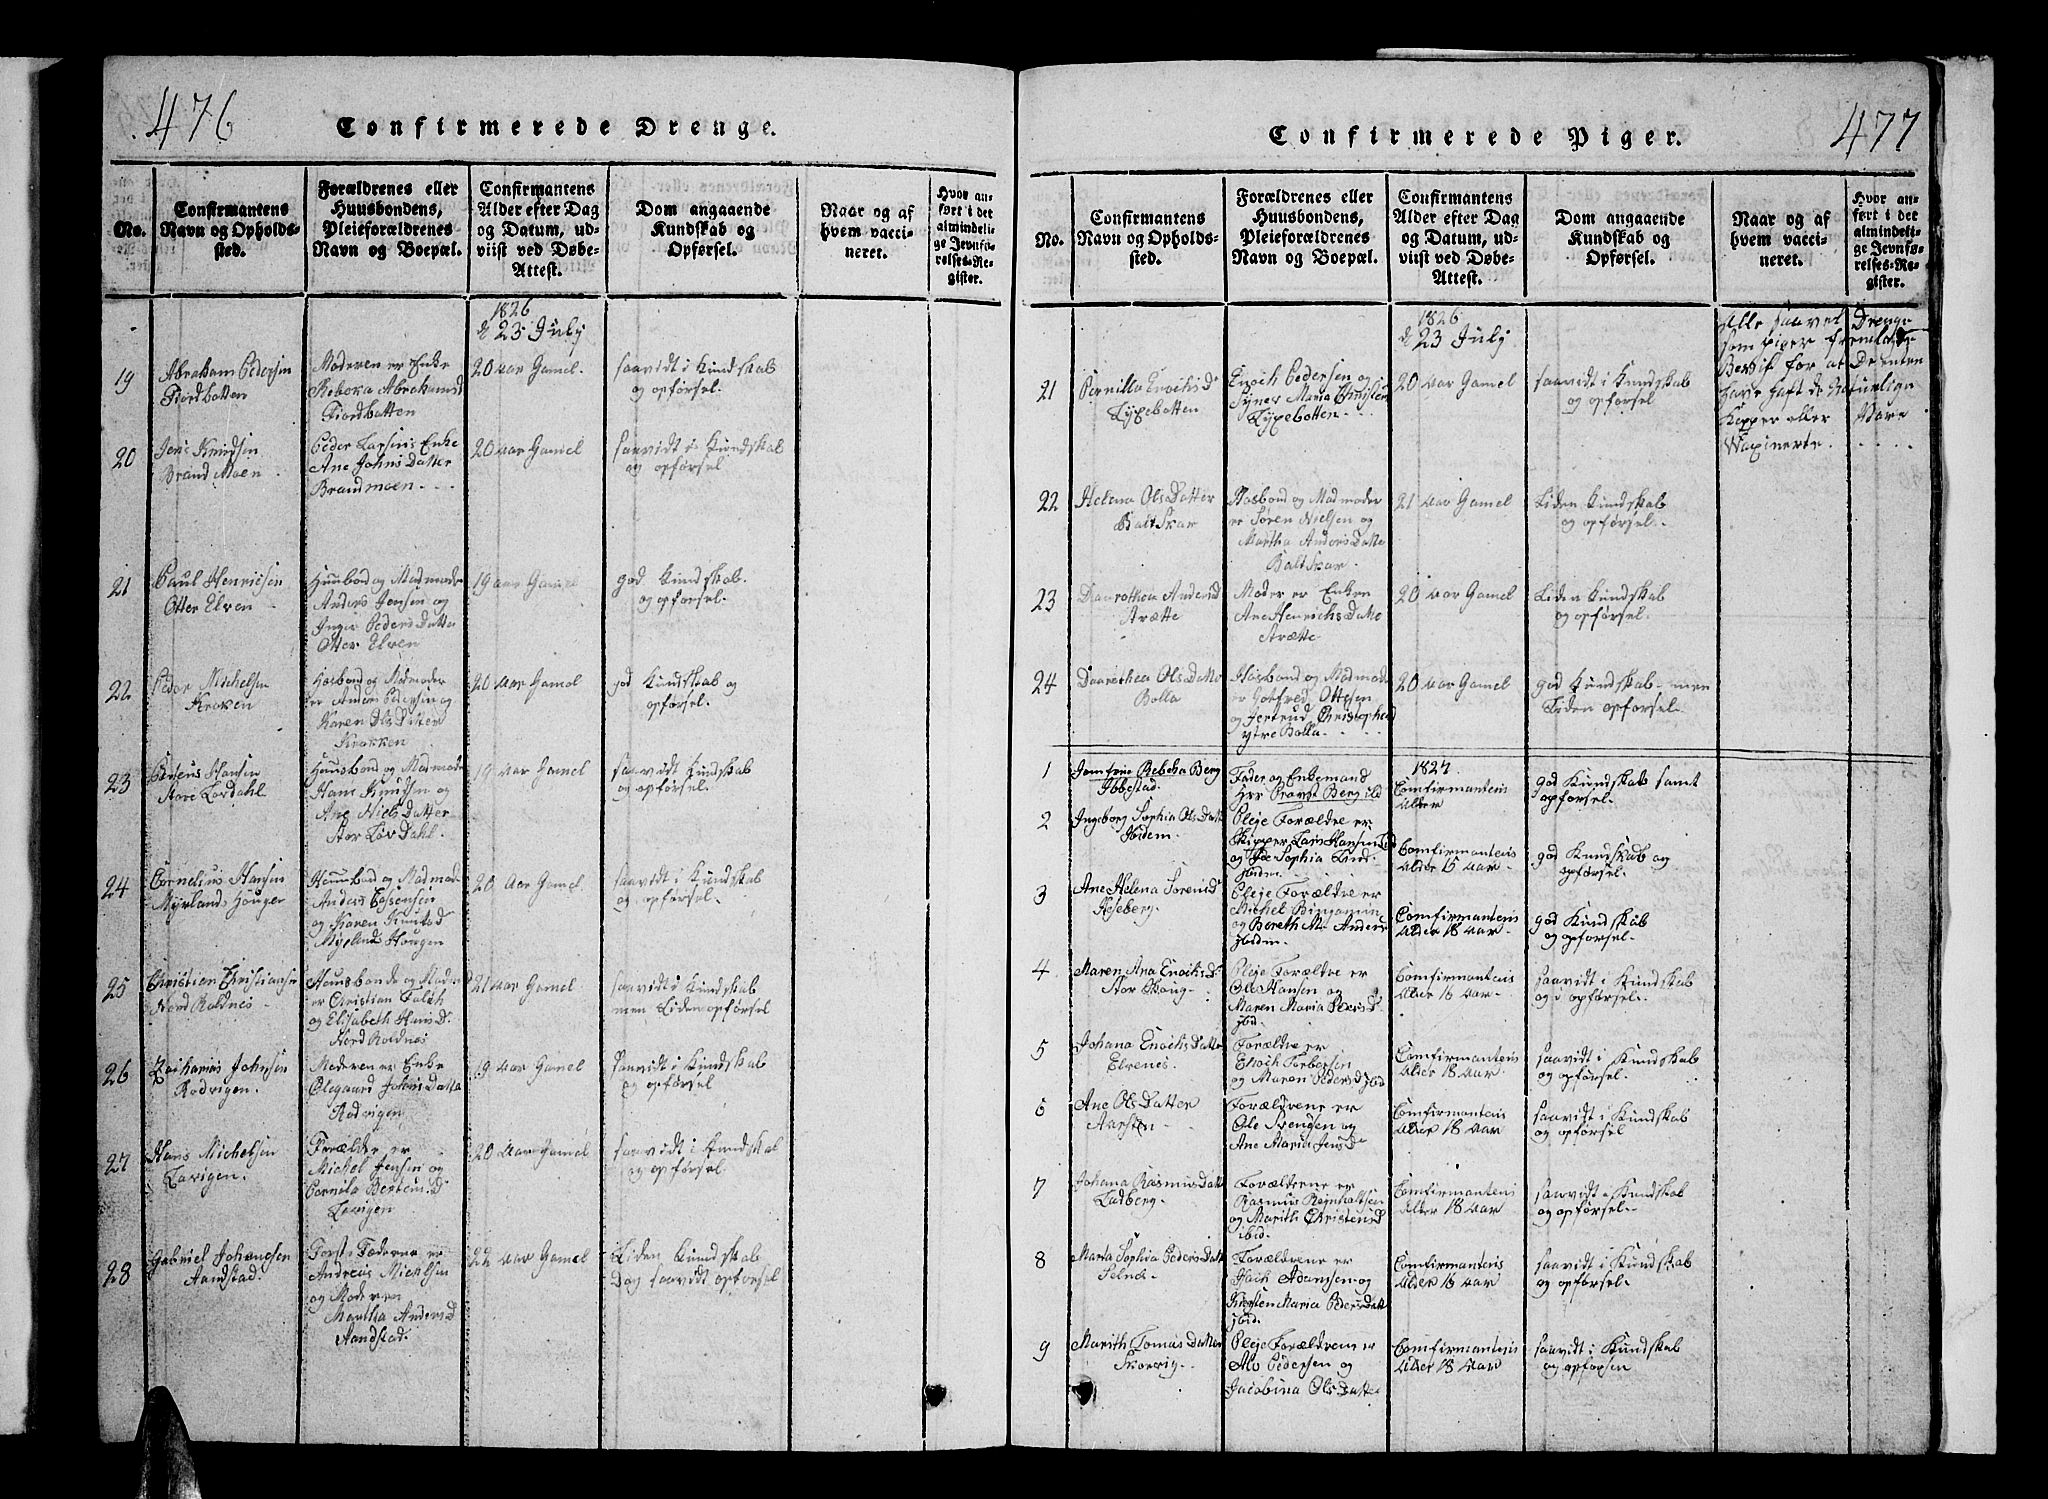 476
Confirmerede Drenge.
No.
Confirmantens
Navn og Opholds-
sted.
Forældrenes eller
Huusbondens,
Pleieforældrenes
Navn og Boepæl.
Confirmantens
Alder efter Dag
og Datum, ud-
viist ved Døbe-
Attest.
Dom angaaende
Kundskab og
Opførsel.
Naar og af
hvem vacci-
neret.
Hvor an-
ført i det
almindeli-
ge Jevnfø-
relses-Re-
gister.
1826
d 23 July
19
Abraham Pedersen
Fiordbotten
Moderen er Enke
Rebeka Abrahamsd
Fiordbotten
20 aar Gamel.
saavidt i Kundskab
og opførsel.
20
Jens Knudsen
Brand Moen
Peder Larsens Enke
Ane Johns Datter
Brandmoen
20 aar Gamel
saavidt i Kundskab
og opførsel
21
Paul Henricsen
Otter Elven
Huusbond og Madmoder
Anders Jensen og
Inger Peders Datter
Otter Elven
19 aar Gamel
god Kundskab.
og opførsel.
22
Peder Michelsen
Kroken
Hosbond og Madmoder
er Anders Pedersen og
Karen Ols Datter
Krokken
20 aar Gamel
god Kundskab og
opførsel.
23
Hansen
Store Løvdahl
Huusbond og Madmoder
Hans Knudsen og
Ane Niels Datter
Stor Løv Dahl.
19 aar Gamel
saavidt Kundskab
og opførsel.
24
Cornelius Hansen
Myrlands Houger
Huusbond og Madmod
Anders Essensen
og Karen Knutsd
Myrland Hougen
20 Aar Gamel
saavidt i Kundskab
og opførsel
25
Christian Christiansen
Nord Rolnes
Huusbonde og Moder
er Christian Falck
og Elisabeth Hans D
Nord Rolnes
21 aar Gamel
saavidt i Kundskab
men Liden opførsel
26
Zacharias Johnsen
Rodvigen.
Moderen er Enke
Olegaard Johns Datter
Rodvigen
19 aar Gamel
saavidt i Kundskab
og opførsel
27
Hans Michelsen
Lavigen.
Forældre er
Michel Jensen og
Pernila Bertein D
Lavigen
20 aar Gamel
saavidt i Kundskab
og opførsel.
28
Gabriel Johansen
Aandstad.
Forst Faderne er
Andreas Michelsen
og Moderen
Martha Anders D
Aandstad.
22 aar Gamel
Liden Kundskab
Dog saavidt opførsel
477
Confirmerede Piger.
No.
Confirmantens
Navn og Opholds-
sted.
Forældrenes eller
Huusbondens,
Pleieforældrenes
Navn og Boepæl.
Confirmantens
Alder efter Dag
og Datum, ud-
viist ved Døbe-
Attest.
Dom angaaende
Kundskab og
Opførsel.
Naar og af
hvem vacci-
neret.
Hvor an-
ført i det
almindeli-
ge Jevnfø-
relses-Re-
gister.
1826
d 23 July
Alle saavel Drenge
som piger fremlagde
Beviis for at De enten
have haft de Naturlige
Kopper eller Være
Waxinerte.
21
Pernilla Enochs D
Typebotten
Enoch Pedersen og
Syner Maria Christen
Typebotten
20 aar Gamel
saavidt i Kundskab
og opførsel
22
Helena Ols Datter
Balt Skar
Hosbond og Madmoder
er Søren Nielsen og
Martha Anders Datter
Balt Skar
21 aar Gamel
Liden Kundskab
og opførsel.
23
Daarothea Andersd
Strætte
Moder er Enken
Ane Henrichs Datter
Strætte
20 aar Gamel
Liden Kundskab
og opførsel.
24
Daarethea Ols Datter
Bolla
Hosbond og Madmoder
er Gotfred Ottesen
og Jertrud Christophersd
ystre Bolla
20 aar Gamel
god Kundskab men
Liden opførsel.
1
Jomfrue Rebeka Berg
Ibbestad.
Fader og Enkemand
Hrr Provst Berg ibid
1827.
Comfirmantens
Alder
god Kundskab samt
opførsel.
2
Ingeborg Sophia Ols Datt
Ibidem.
Pleje Forældre er
Skipper Lars Hansen Lind
og Ide Sophia Lind.
Ibidm.
Comfirmantens
Alder 15 aar.
god Kundskab og
opførsel.
3
Ane Helena Sørens D
Heseberg.
Pleje Forældre er
Michel Binjamin
og Bereth M. Anders
Ibidm.
Comfirmantens
Alder 18 aar.
god Kundskab
og opførsel.
4
Maren Ana Enochs D.
Stor
Pleje Forældre er
Ole Hansen og
Maren Maria Peders D
Ibid.
Comfirmantens
Alder 16 aar.
saavidt i Kundskab
og i opførsel.
5
Johana Enochs Datter
Elvenes.
Forældre er
Enoch Torbersen
og Maren Pedersd Ibid
Comfirmantens
Alder 18 aar.
saavidt i Kundskab
og opførsel.
6
Ane Ols Datter
Aarsten
Forældrene er
Ole Svengen og
Ane Maria Jens D
Comfirmantens
Alder 18 aar
saavidt i Kundskab
og opførsel
7
Johana Rasmus Datt
Ladberg.
Forældrene er
Rasmus Reinholtsen
og Marith Christensd
ibid.
Comfirmantens
Alder 18 aar
saavidt i Kundskab
og opførsel.
8
Marta Sophia Peders Datt
Selnes.
Forældrene er
Adamsen og
Kirsten Maria Peders Datt
Ibid.
Comfirmantens
Alder 16 aar
saavidt i Kundskab
og opførsel.
9
Marith Tomas Datter
Skorvig.
Pleje Forældrene er
Alv Pedersen og
Jacobina Ols Datter
Comfirmantens
Alder 18 aar
saavidt i Kundskab
og opførsen